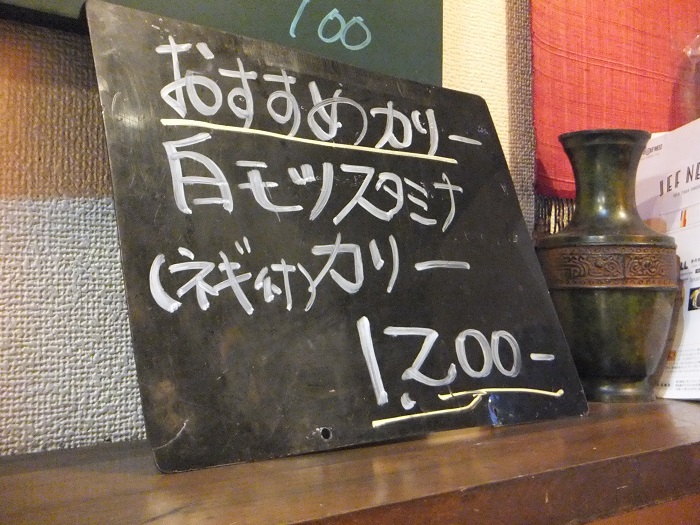 100
おすすめカリー
白モツスタミナ
(ネギ付)カリー
1,200-